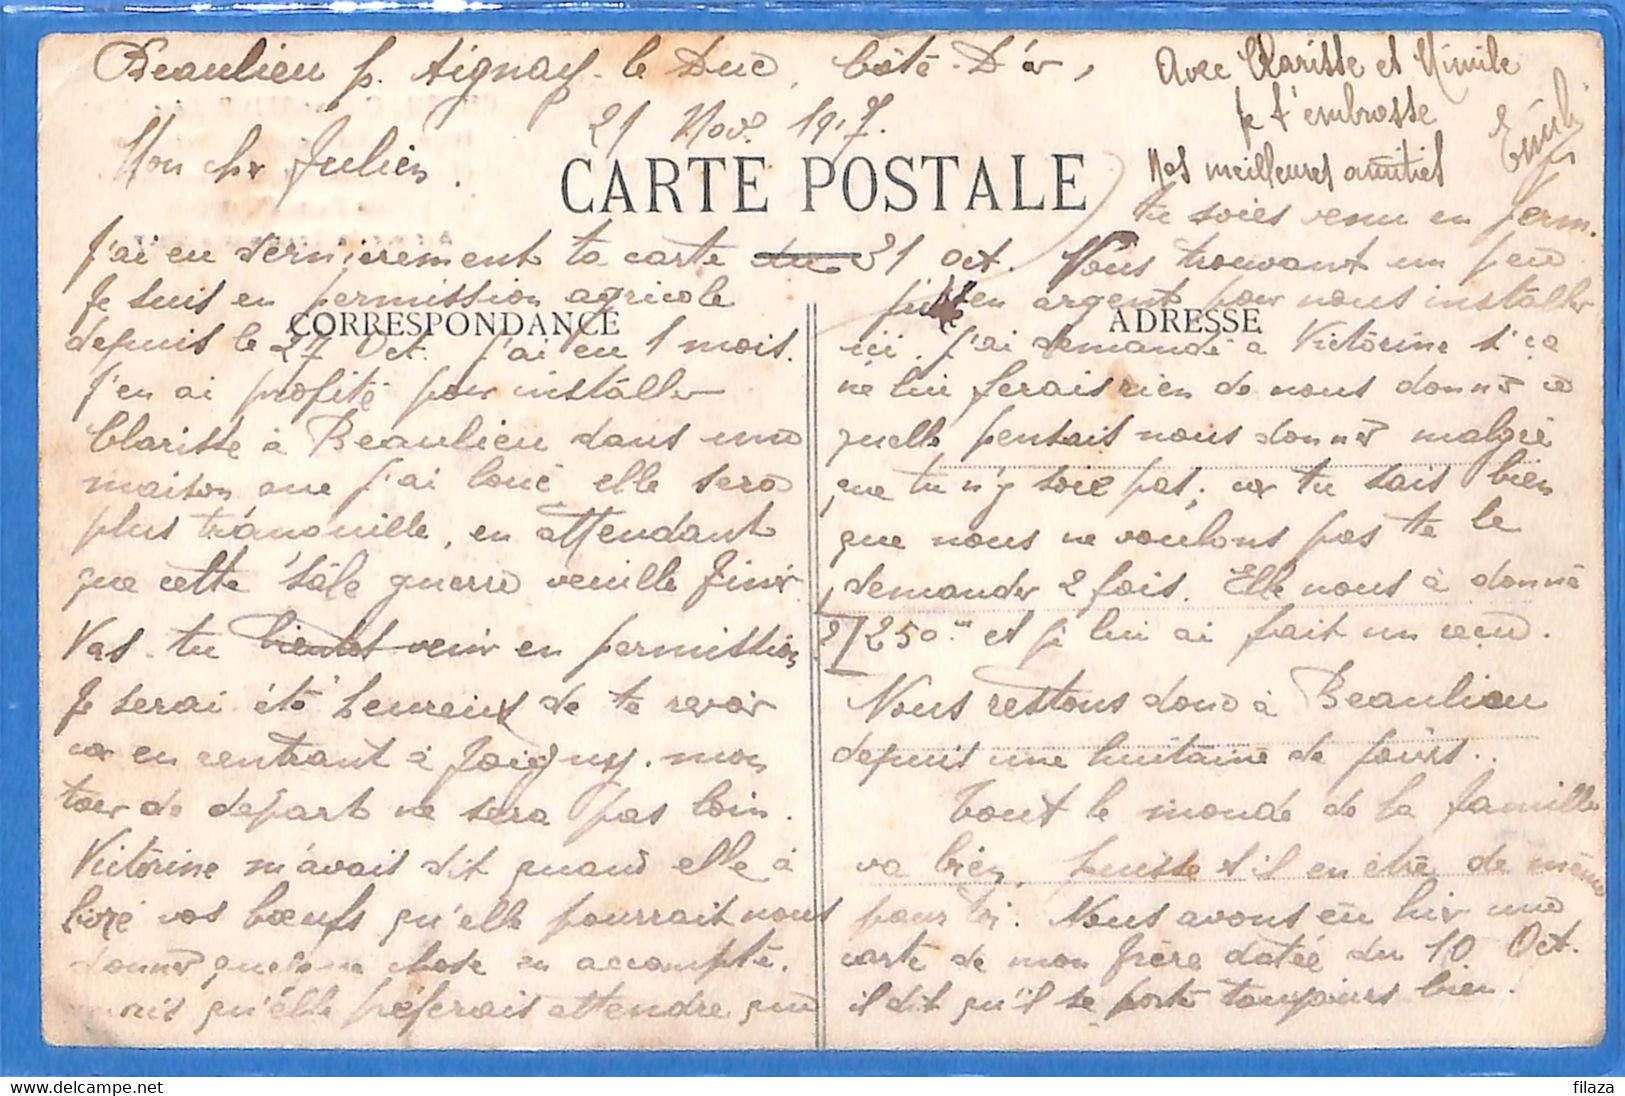 Beaulieu p. Aignay-le Duc, Côte-D'or,
21 Nov. 1917.
Mon cher Julien.
CARTE POSTALE
CORRESPONDANCE
J'ai eu dernièrement ta carte du 31 oct.
Je suis en permission agricole
depuis le 27 Oct. J'ai eu 1 mois.
J'en ai profité pour installer
Clarisse à Beaulieu dans une
maison que j'ai loué elle sera
plus tranquille, en attendant
que cette sâle guerre veuille finir
Vas-tu bientot venir en permission
Je serai été heureux de te revoir
car en rentrant à Joigny. mon
tour de départ ne sera pas loin.
Victorine m'avais dit quand elle à
livré vos boeufs qu'elle pourrait nous
donner quelque chose en accompte.
mais qu'elle préferais attendre que
ADRESSE
tu soies venu en perm.
Nous trouvant un peu
juste en argent pour nous installer
ici. J'ai demandé à Victorine s'ca
ne lui ferais rien de nous donner ce
quelle pensais nous donner malgré
que tu n'y soie pas, car tu sais bien
que nous ne voulons pas te le
demander 2 fois. Elle nous à donné
250 et je lui ai fait un recu.
Nous restons donc à Beaulieu
depuis une huitaine de jours.
Tout le monde de la famille
va bien, puisse t'il en être de même
pour toi. Nous avons eu hier une
carte de mon frère datée du 10 Oct.
il dit qu'il se porte toujours bien.
Avec Clarisse et Mimile
je t'embrasse
Nos meilleures amitiés
Emile
filaza